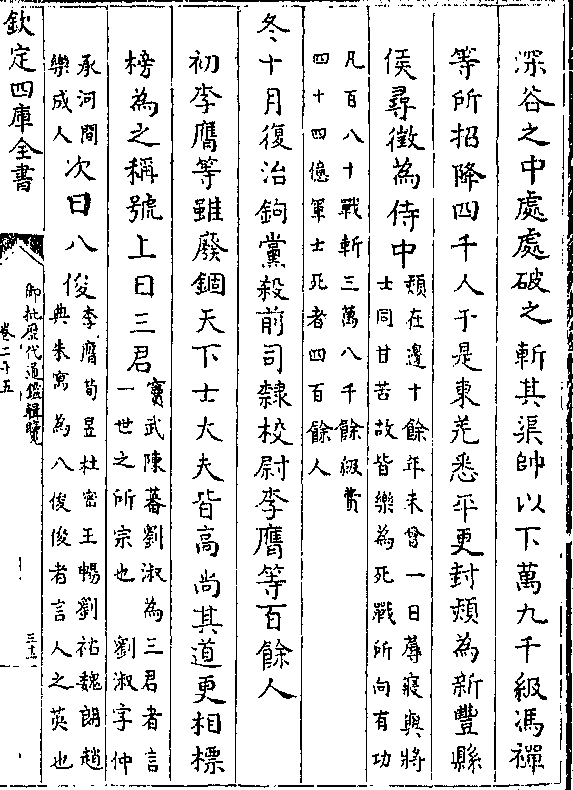 深谷之中處處破之斬其渠帥以下萬九千級馮禪
等所招降四千人于是東羌悉平更封熲為新豐縣
侯尋徵為侍中熲在邊十餘年未曾一日蓐寢與將
士同甘苦故皆樂為死戰所向有功
凡百八十戰斬三萬八千餘級費
四十四億軍士死者四百餘人
冬十月復治鉤黨殺前司隸校尉李膺等百餘人
初李膺等雖廢錮天下士大夫皆高尚其道更相標
榜為之稱號上曰三君竇武陳蕃劉淑為三君君者言
一世之所宗也 劉淑字仲
承河間
樂成人次曰八俊李膺荀昱杜密王暢劉祐魏朗趙
典朱㝢為八俊俊者言人之英也
欽定四庫全書
御批歷代通鑑輯覽
卷二十五